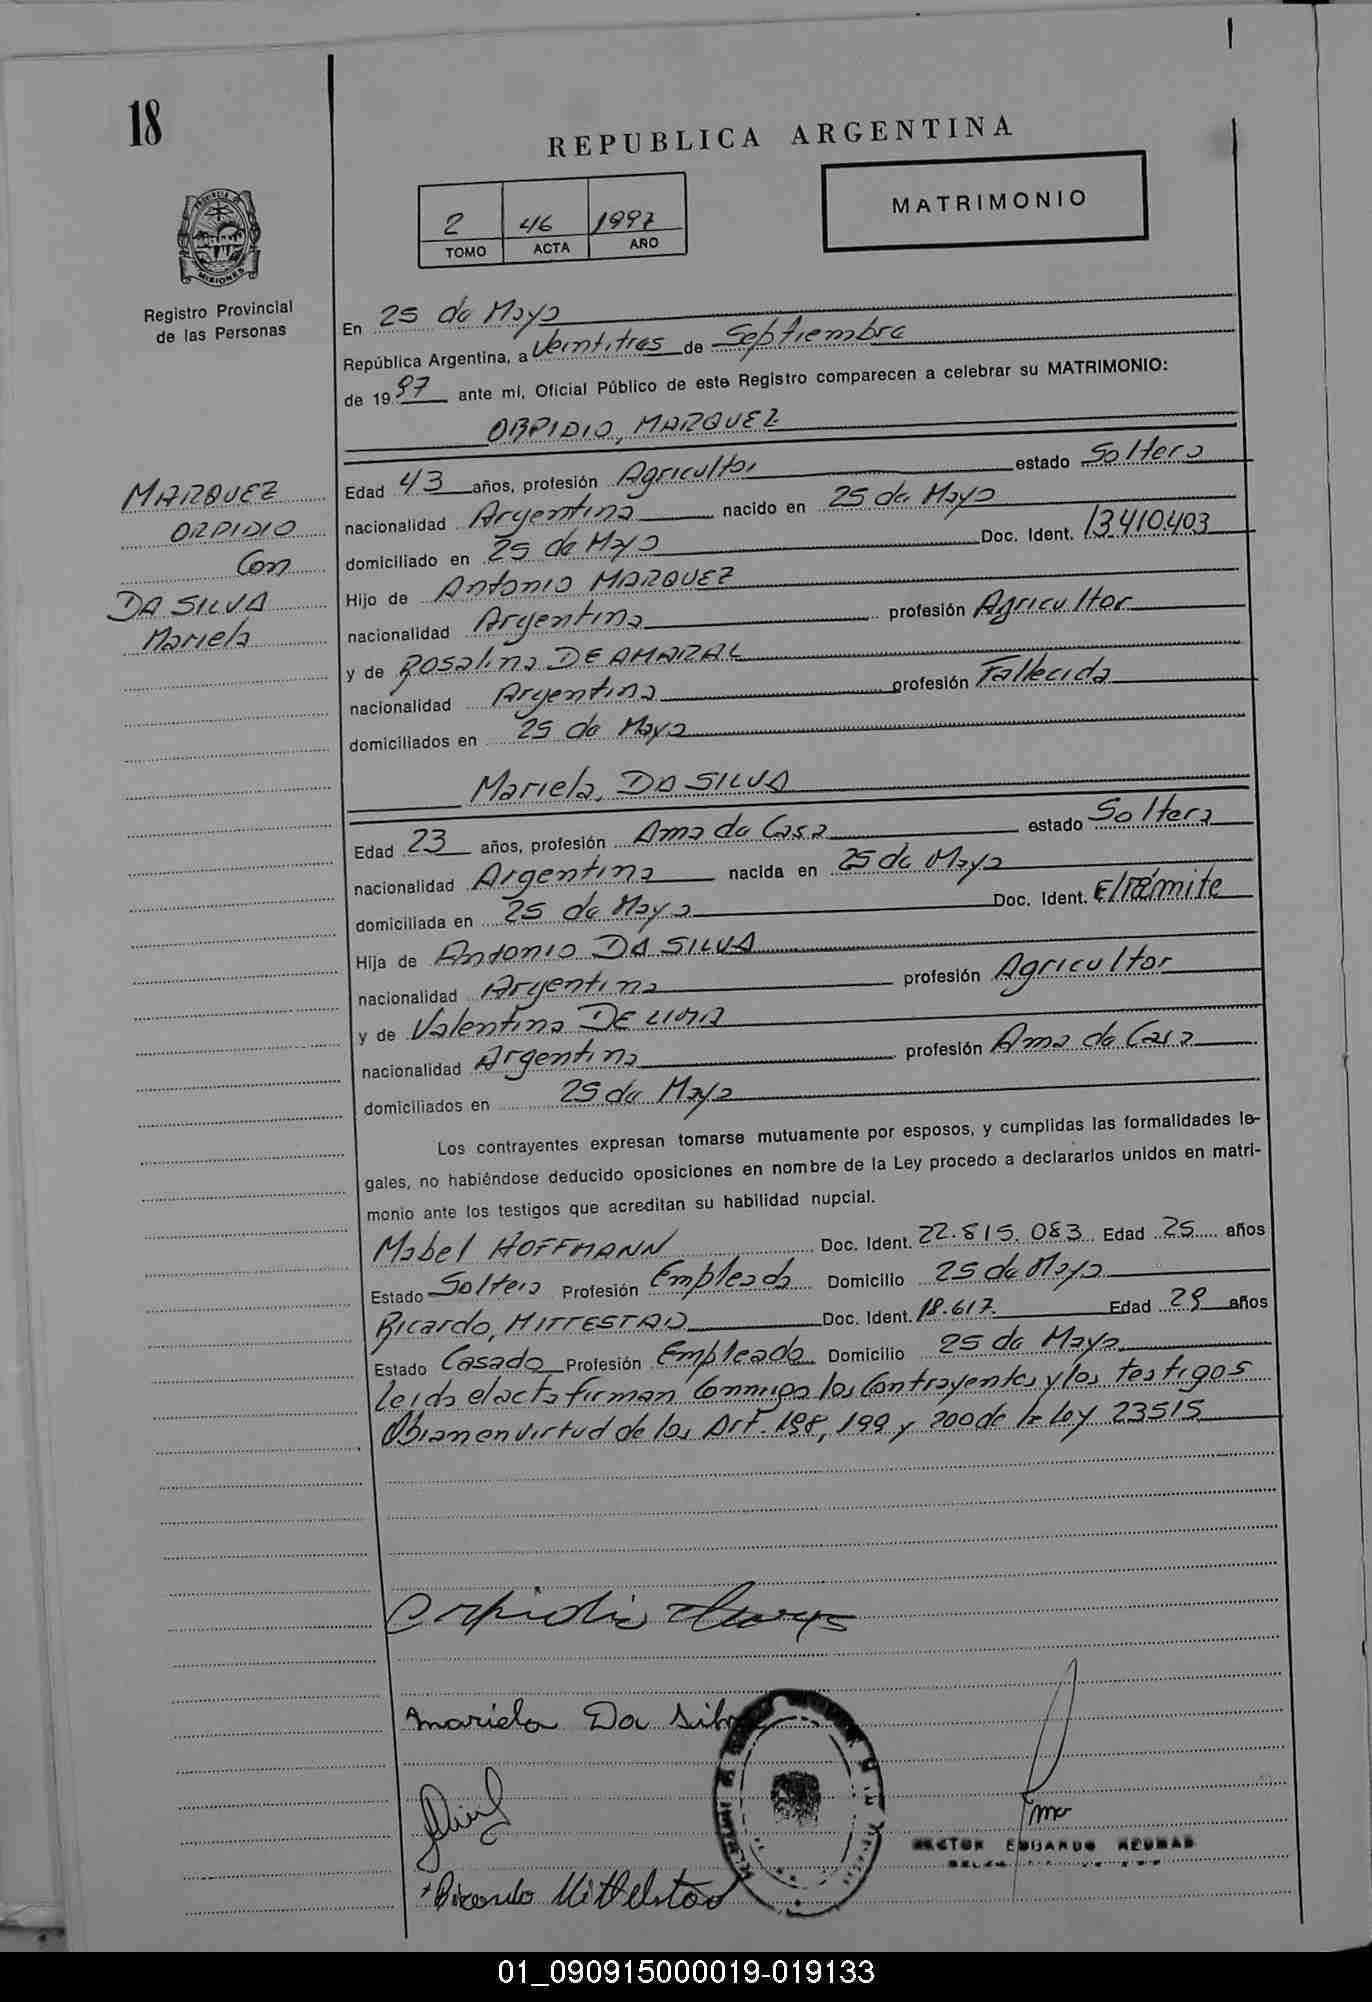 18
REPUBLICA ARGENTINA
MATRIMONIO
2 46 1997
TOMO ACTA AÑO
PROVINCIA DE
MISIONES
Registro Provincial
de las Personas
En 25 de Mayo
República Argentina, a Veintitres de Septiembre
de 1997 ante mi, Oficial Público de este Registro comparecen a celebrar su MATRIMONIO:
ORPIDIO, MARQUEZ
MARQUEZ
ORPIDIO
Con
DA SILVA
Mariela
Edad 43 años, profesión Agricultor estado Soltero
nacionalidad Argentina nacido en 25 de Mayo
domiciliado en 25 de Mayo Doc. Ident. 13.410.403
Hijo de Antonio MARQUEZ
nacionalidad Argentina profesión Agricultor
y de Rosalina DE AMARAL
nacionalidad Argentina profesión Fallecida
domiciliados en 25 de Mayo
Mariela, DA SILVA
Edad 23 años, profesión Ama de Casa estado Soltera
nacionalidad Argentina nacida en 25 de Mayo
domiciliada en 25 de Mayo Doc. Ident. E/Trámite
Hija de Antonio DA SILVA
nacionalidad Argentina profesión Agricultor
y de Valentina DE LIMA
nacionalidad Argentina profesión Ama de Casa
domiciliados en 25 de Mayo
Los contrayentes expresan tomarse mutuamente por esposos, y cumplidas las formalidades le-
gales, no habiéndose deducido oposiciones en nombre de la Ley procedo a declararlos unidos en matri-
monio ante los testigos que acreditan su habilidad nupcial.
Mabel HOFFMANN Doc. Ident. 22.815.083 Edad 25 años
Estado Soltera Profesión Empleada Domicilio 25 de Mayo
Ricardo, MITTESTAD Doc. Ident. 18.617. Edad 29 años
Estado Casado Profesión Empleado Domicilio 25 de Mayo
Leida el acta firman conmigo los Contrayentes y los testigos
Obran en virtud de los Art. 198, 199 y 200 de la Ley 23515
Orpidio
Mariela Da Silva
Ricardo Mittelstad
HECTOR EDUARDO
01_090915000019-019133